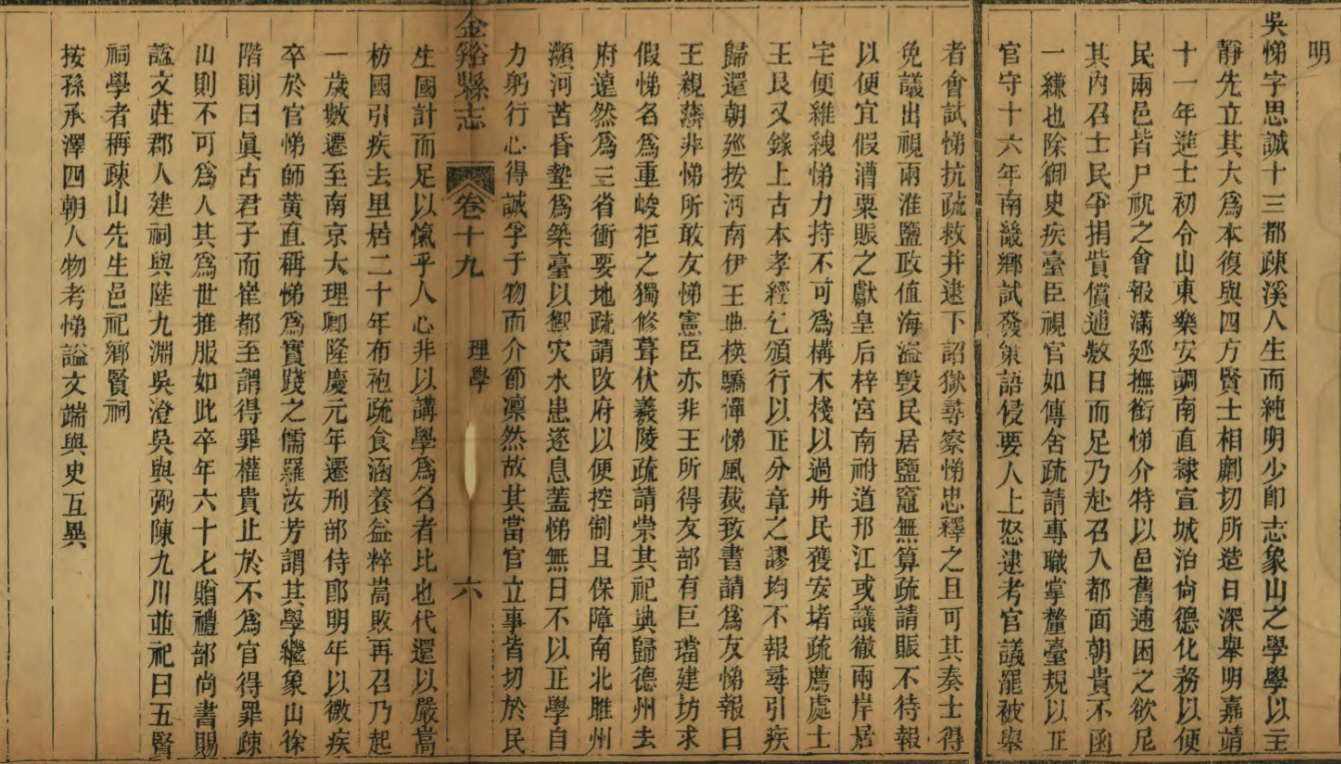 明
吳悌字思誠十三都疎溪人生而純明少卽志象山之學學以主
靜先立其大爲本復與四方賢士相劘切所造日深舉明嘉靖
十一年進士初令山東樂安調南直隸宣城治尙德化務以便
民兩邑皆尸祝之會報滿廵撫銜悌介特以邑舊逋困之欲尼
其內召士民爭捐貲償逋數日而足乃赴召入都面朝貴不函
一縑也除御史疾臺臣視官如傳舍疏請專職掌釐臺規以正
官守十六年南畿鄉試發策語侵要人上怒逮考官議罷被舉
者會試悌抗疏救并逮下詔獄尋察悌忠釋之且可其奏士得
免議出視兩淮鹽政值海溢毀民居鹽竈無算疏請賑不待報
以便宜假漕粟賑之獻皇后梓宮南祔道邗江或議徹兩岸居
宅便維綍悌力持不可爲構木棧以過舟民獲安堵疏薦處士
王艮又錄上古本孝經乞頒行以正分章之謬均不報尋引疾
歸還朝廵按河南伊王典楧驕憚悌風裁致書請爲友悌報曰
王親藩非悌所敢友悌憲臣亦非王所得友部有巨璫建坊求
假悌名爲重峻拒之獨修葺伏羲陵疏請崇其祀典歸德州去
府遠然爲三省衝要地疏請改府以便控制且保障南北雎州
瀕河苦昏墊爲築臺以禦灾水患遂息蓋悌無日不以正學自
力躬行心得誠孚于物而介節凛然故其當官立事皆切於民
金谿縣志
卷十九
理學
六
生國計而足以愾乎人心非以講學爲名者比也代還以嚴嵩
枋國引疾去里居二十年布袍疏食涵養益粹嵩敗再召乃起
一歲數遷至南京大理卿隆慶元年遷刑部侍郞明年以微疾
卒於官悌師黃直稱悌爲實踐之儒羅汝芳謂其學繼象山徐
階則曰眞古君子而崔都至謂得罪權貴止於不爲官得罪疎
山則不可爲人其爲世推服如此卒年六十七贈禮部尙書賜
諡文莊郡人建祠與陸九淵吳澄吳與弼陳九川並祀曰五賢
祠學者稱疎山先生邑祀鄉賢祠
按孫承澤四朝人物考悌諡文端與史互異